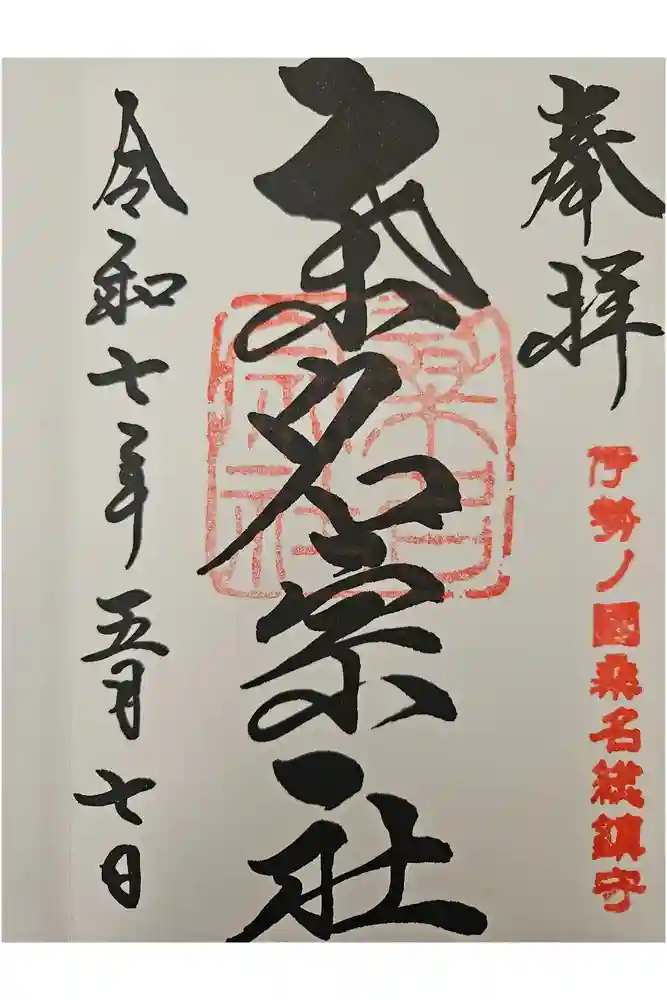 奉拝
伊勢ノ國桑名総鎮守
桑名宗社
令和七年五月七日